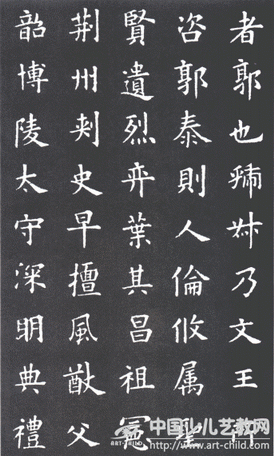 者郭也虢叔乃文王所
咨郭泰則人倫攸属聖
賢遺烈弈葉其昌祖
荆州刾史早擅風猷父
韶博陵太守深明典禮
中国少儿艺教网
http://www.art-child.com